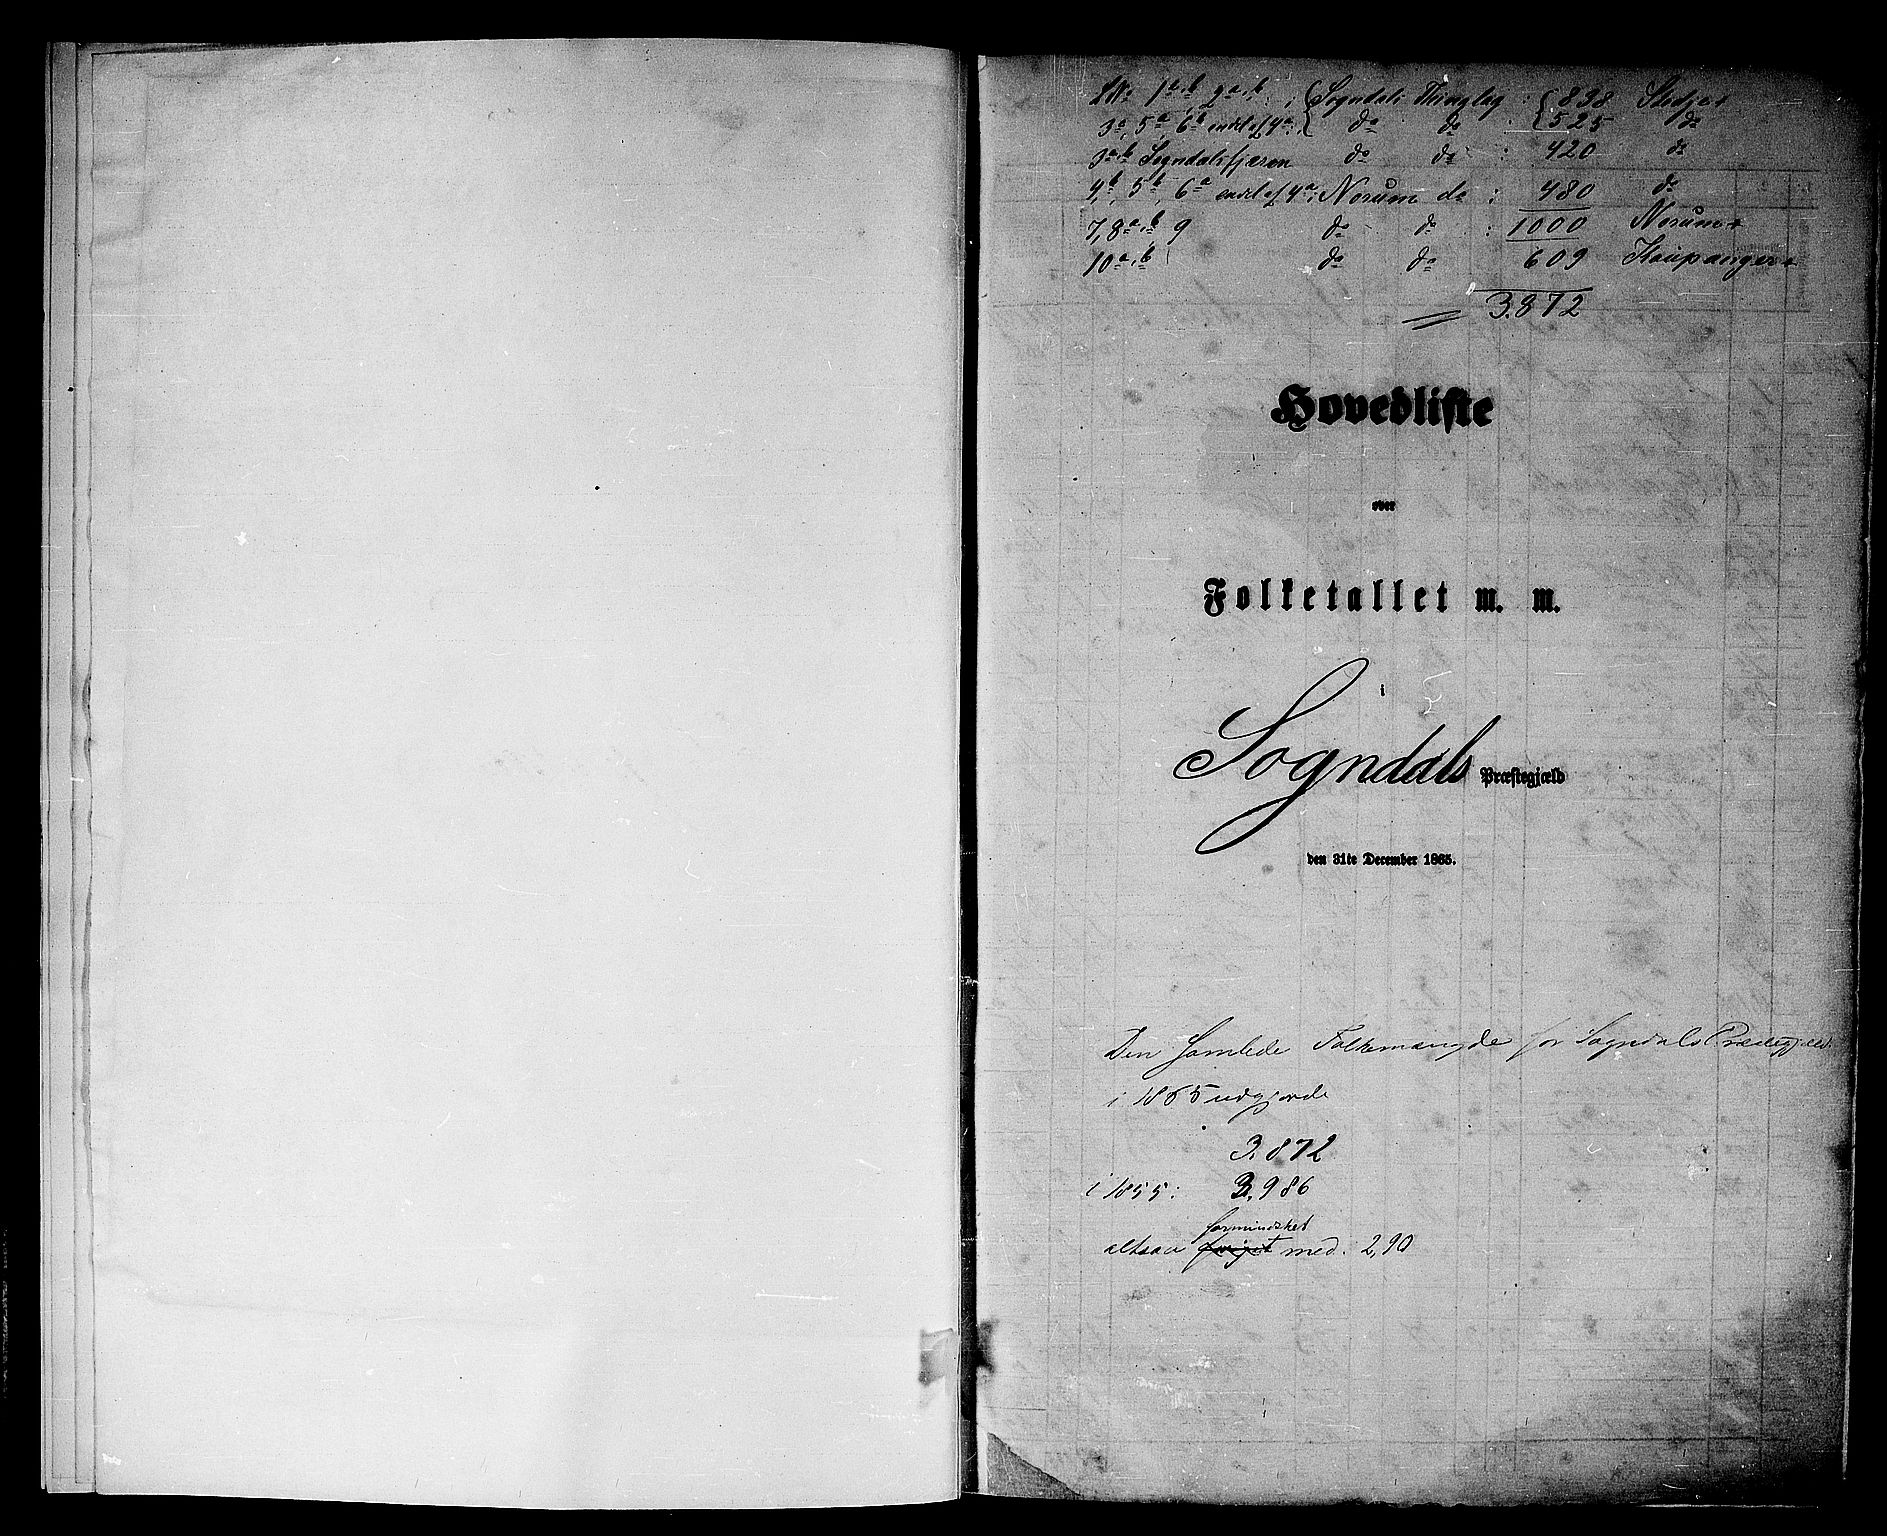 LNo 1a,b 2a,b : Sogndals Thinglag : 838 Stedje+
3a, 5a, 6b endel af 4a: do do 525 do
3a,b Sogndalsfjæren do do : 420 do
4b, 5b, 6a endel af 4a: Norum do : 480 do
7, 8a,b 9 do do : 1000 Norum+
10a,b do do 609 Kaupanger+
3.872
Hovedliste
over
Folketallet m. m.
i
Sogndals Præstegjæld
den 31te December 1865.
Den samlede Folkemængde for Sogndals Præstegjæld
i 1865 udgjorde
3.872
i 1855: 3.986
formindsket
altsaa med: 2,90